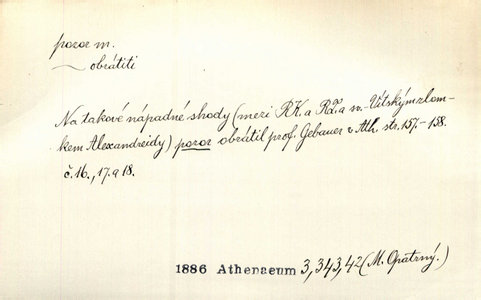 pozor m.
~ obrátiti
Na takové nápadné shody (mezi RK. a RZ. a sv.-Vítským zlom-
kem Alexandreidy) pozor obrátil prof. Gebauer v Ath. str. 157.–158.
č. 16., 17. a 18.
1886 Athenaeum 3, 343, 42 (M. Opatrný.)